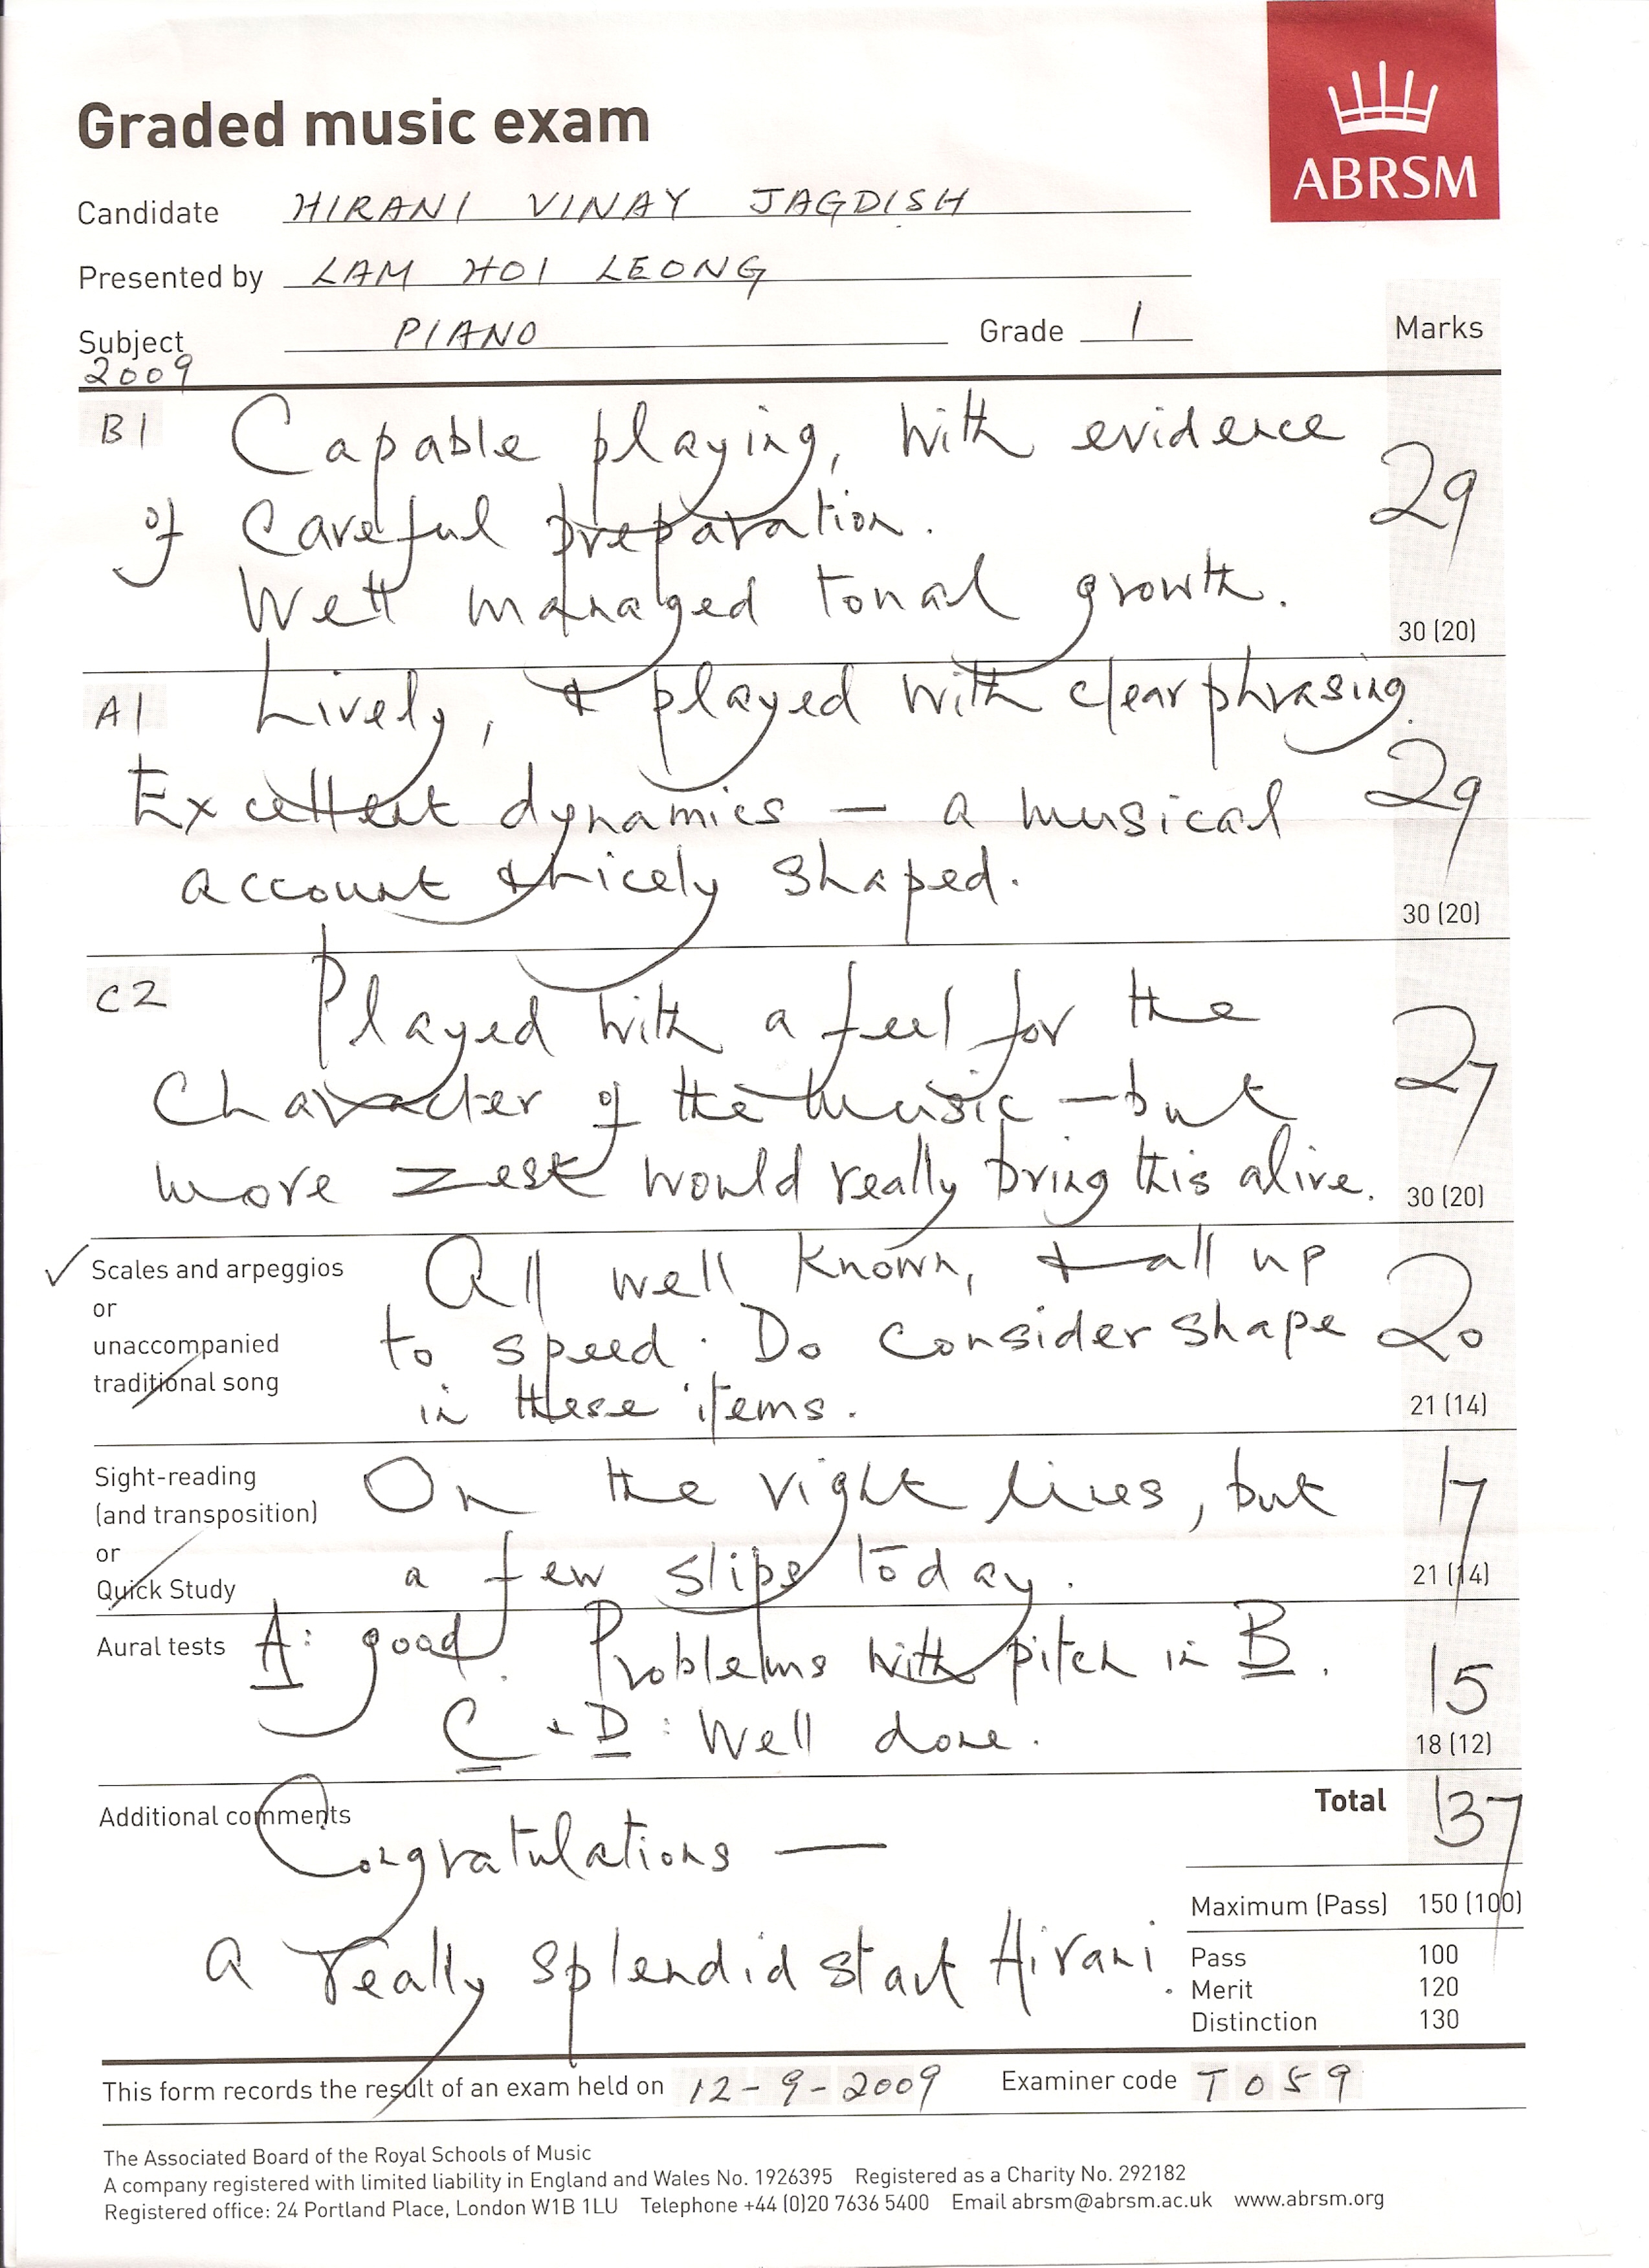 Graded music exam
ABRSM
Candidate HIRANI VINAY JAGDISH
Presented by LAM HOI LEONG
Subject PIANO Grade 1 Marks
2009
B1 Capable playing, with evidence
of careful preparation.
Well managed tonal growth.
29
30 (20)
A1 Lively, & played with clear phrasing.
Excellent dynamics — a musical
account & nicely shaped.
29
30 (20)
C2 Played with a feel for the
character of the music — but
more zest would really bring this alive.
27
30 (20)
✓ Scales and arpeggios
or
unaccompanied
traditional song
All well known, & all up
to speed. Do consider shape
in these items.
20
21 (14)
Sight-reading
(and transposition)
or
Quick Study
On the right lines, but
a few slips today.
17
21 (14)
Aural tests A: good. Problems with pitch in B.
C & D: Well done.
15
18 (12)
Additional comments
Congratulations —
a really splendid start Hirani.
Total 137
Maximum (Pass) 150 (100)
Pass 100
Merit 120
Distinction 130
This form records the result of an exam held on 12-9-2009 Examiner code T059
The Associated Board of the Royal Schools of Music
A company registered with limited liability in England and Wales No. 1926395 Registered as a Charity No. 292182
Registered office: 24 Portland Place, London W1B 1LU Telephone +44 (0)20 7636 5400 Email abrsm@abrsm.ac.uk www.abrsm.org